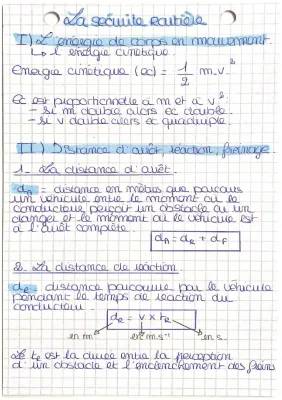 La sécurité routière
I) L'énergie de corps en mouvement.
↳ l'énergie cinétique.
Energie cinétique (ec) = 1/2 m.v²
Ec est proportionnelle à m et à v².
- si m double alors ec double.
- si v double alors ec quadruple.
II) Distance d'arrêt, réaction, freinage
1- La distance d'arrêt.
dA = distance en mètres que parcours
un véhicule entre le moment où le
conducteur perçoit un obstacle ou un
danger et le moment où le véhicule est
à l'arrêt complète.
dA = dR + dF
2- La distance de réaction
dR = distance parcourue par le véhicule
pendant le temps de réaction du
conducteur.
dR = v x tR
en m en m.s⁻¹ en s.
Le tR est la durée entre la perception
d'un obstacle et l'enclenchement des freins